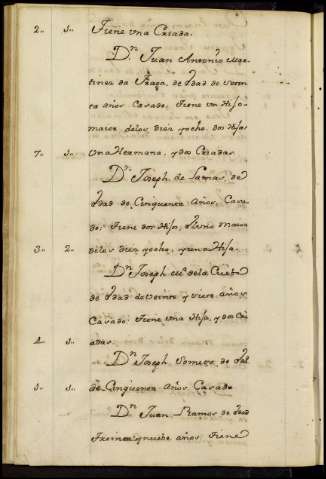 2.. 1.. Tiene una Criada.
Dn. Juan Antonio Mar-
tinez de la de Edad de
ta años Casado, Tiene un Hijo
maior delos diez y ocho, dos Hijas
7.. 1.. una Hermana, y dos Criadas
Dn. Joseph de Lamas, de
Edad de Cinquenta Años, Casa-
do; Tiene dos Hijos, el uno maior
3.. 2.. delos diez y ocho, y una Hija.
Dn. Joseph de la Cuesta
de Edad de veinte y siete años
Casado: Tiene una Hija, y dos Cri-
4.. 1.. adas.
Dn. Joseph Romero de Ed
1.. 1.. de Cinquenta Años Casado
Dn. Juan Ramos de Edad
Treinta y nuebe años, Tiene